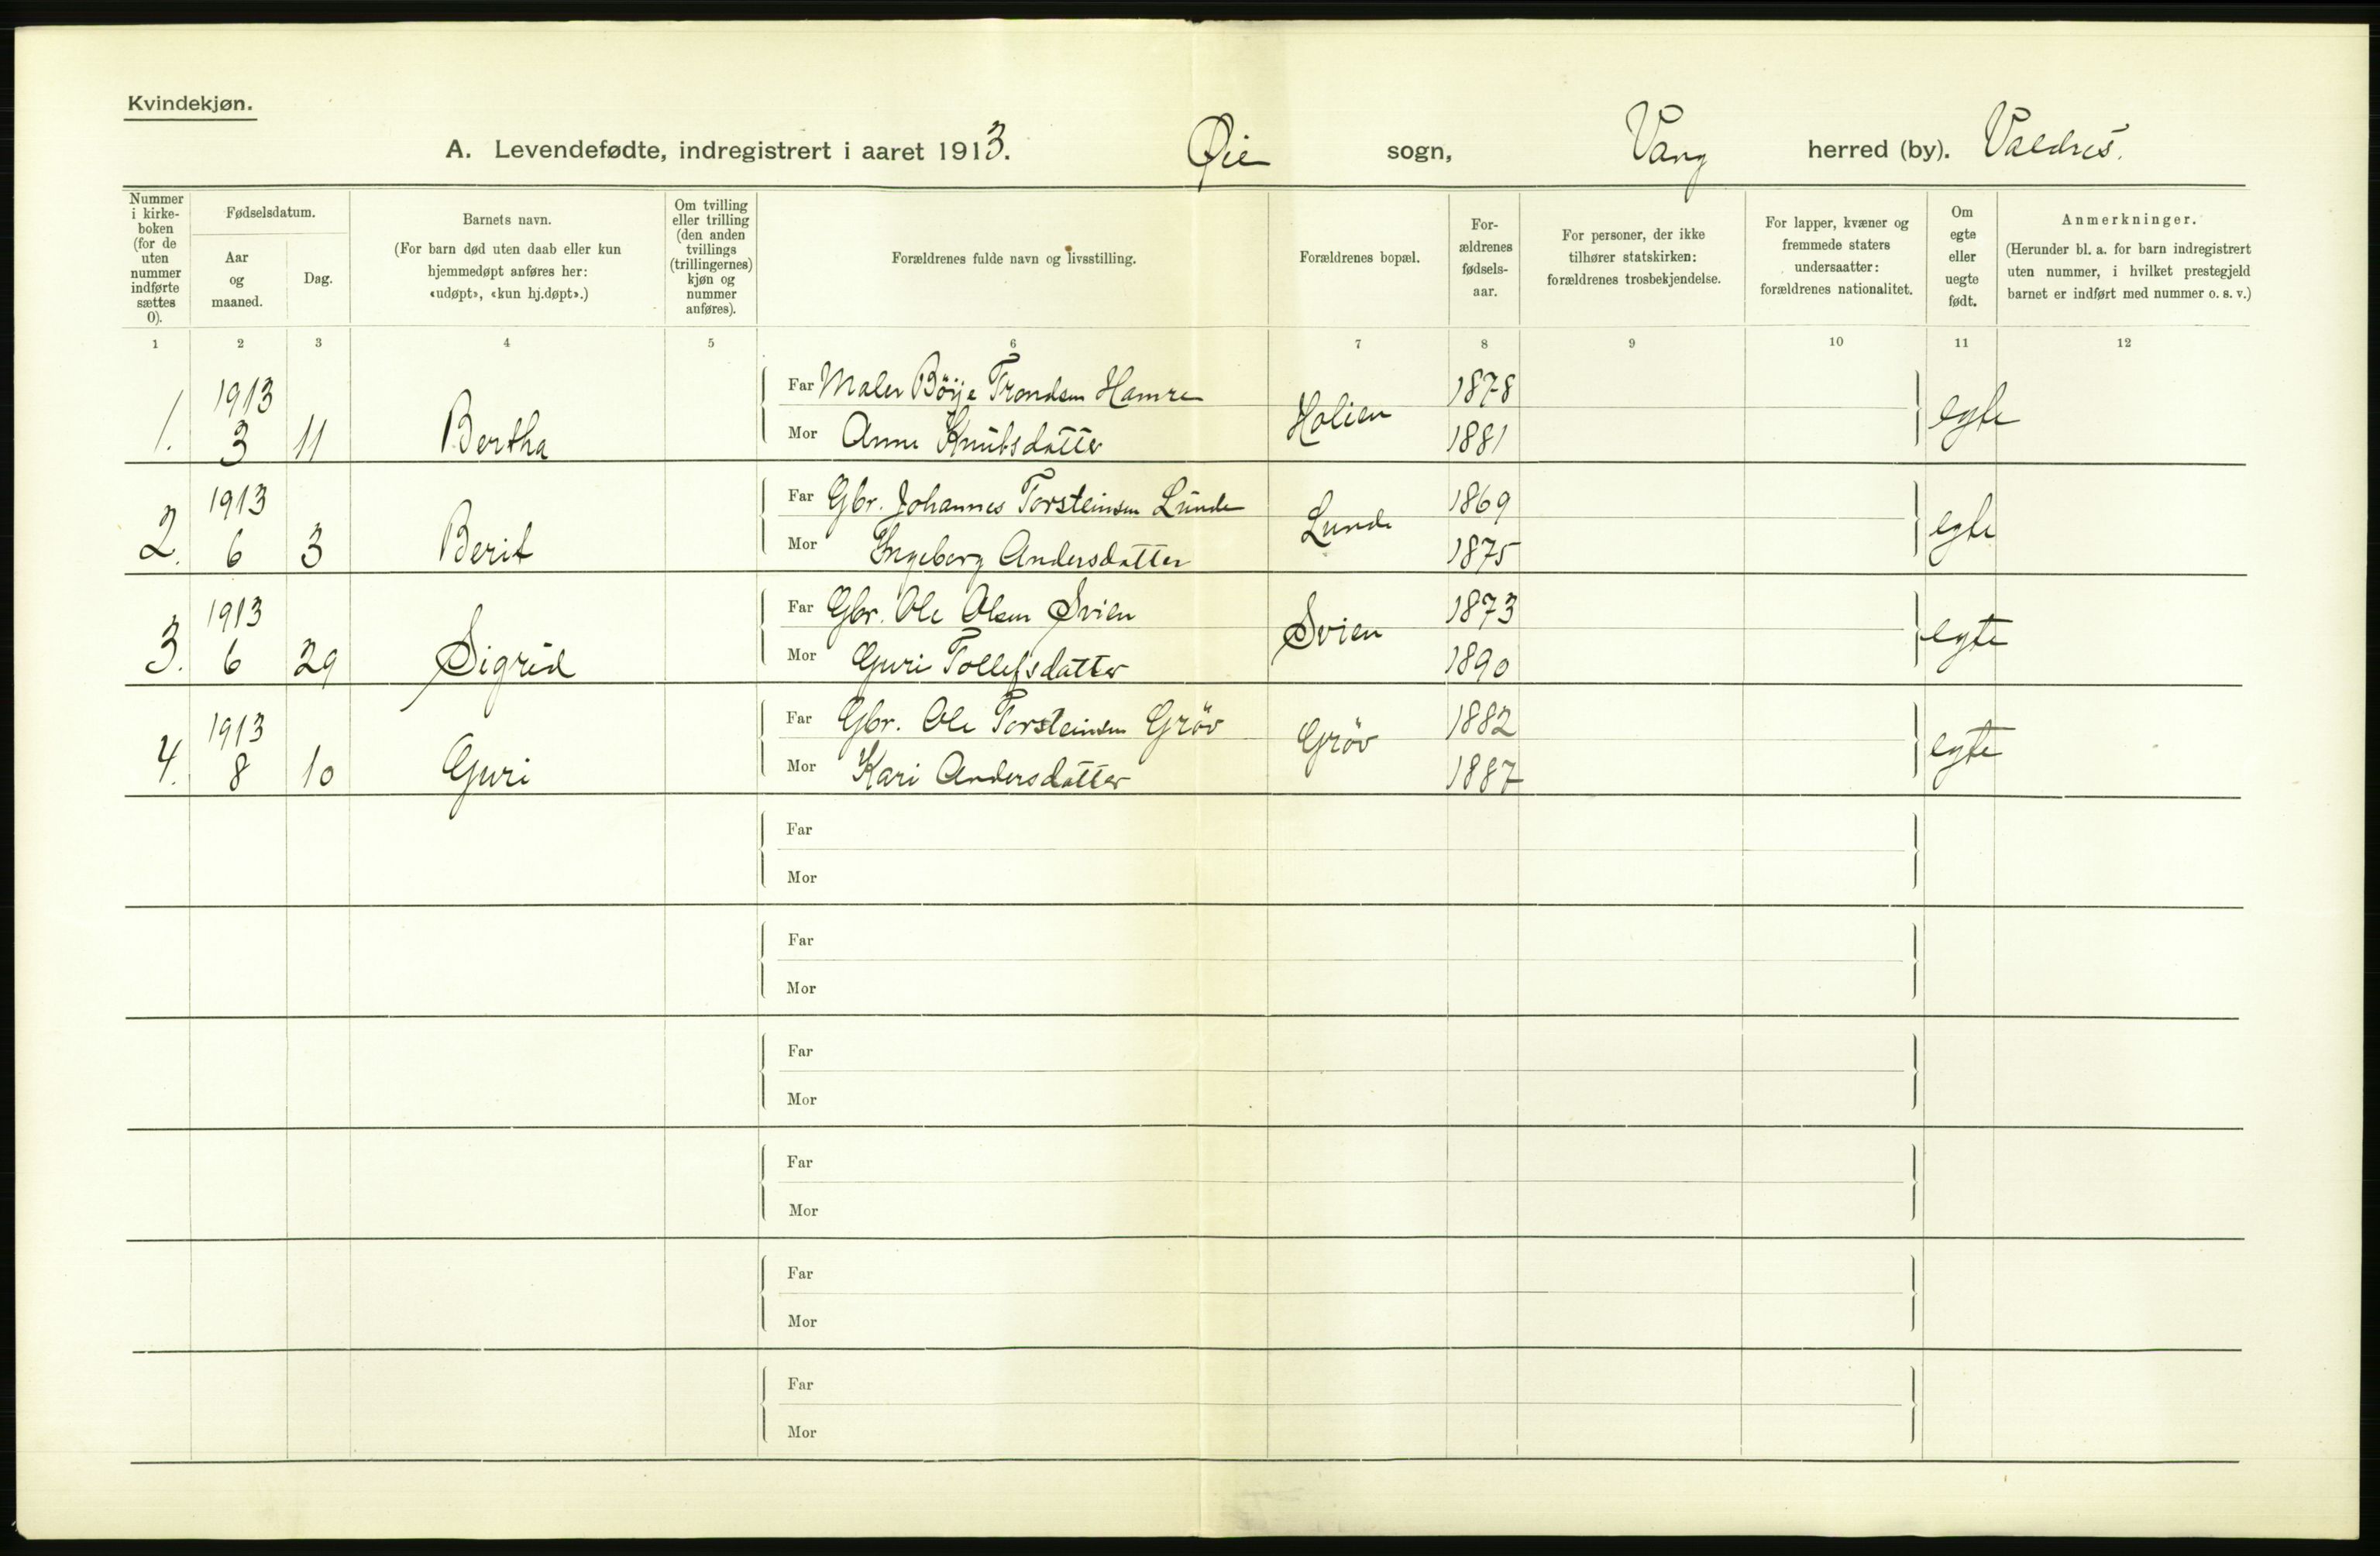 Kvindekjøn.
A. Levendefødte, indregistrert i aaret 1913. Øie sogn, Vang herred (by). Valdres.
Nummer i kirke-boken (for de uten nummer indførte sættes 0).
Fødselsdatum.
Aar og maaned.
Dag.
Barnets navn.
(For barn død uten daab eller kun
hjemmedøpt anføres her:
«udøpt», «kun hj.døpt».)
Om tvilling
eller trilling
(den anden
tvillings
(trillingernes)
kjøn og
nummer
anføres).
Forældrenes fulde navn og livsstilling.
Forældrenes bopæl.
For-
ældrenes
fødsels-
aar.
For personer, der ikke
tilhører statskirken:
forældrenes trosbekjendelse.
For lapper, kvæner og
fremmede staters
undersaatter:
forældrenes nationalitet.
Om
egte
eller
uegte
født.
Anmerkninger.
(Herunder bl. a. for barn indregistrert
uten nummer, i hvilket prestegjeld
barnet er indført med nummer o. s. v.)
1 2 3 4 5 6 7 8 9 10 11 12
1913 Far Maler Börje Trondsen Hamre 1878
1. 3 11 Bertha Mor Anne Knutsdatter Holien 1881 egte
1913 Far Gbr. Johannes Torsteinsen Lunde 1869
2. 6 3 Berit Mor Ingeborg Andersdatter Lunde 1875 egte
1913 Far Gbr. Ole Olsen Svien 1873
3. 6 29 Sigrid Mor Guri Tollefsdatter Svien 1890 egte
1913 Far Gbr. Ole Torsteinsen Gröv 1882
4. 8 10 Guri Mor Kari Andersdatter Gröv 1887 egte
Far
Mor
Far
Mor
Far
Mor
Far
Mor
Far
Mor
Far
Mor